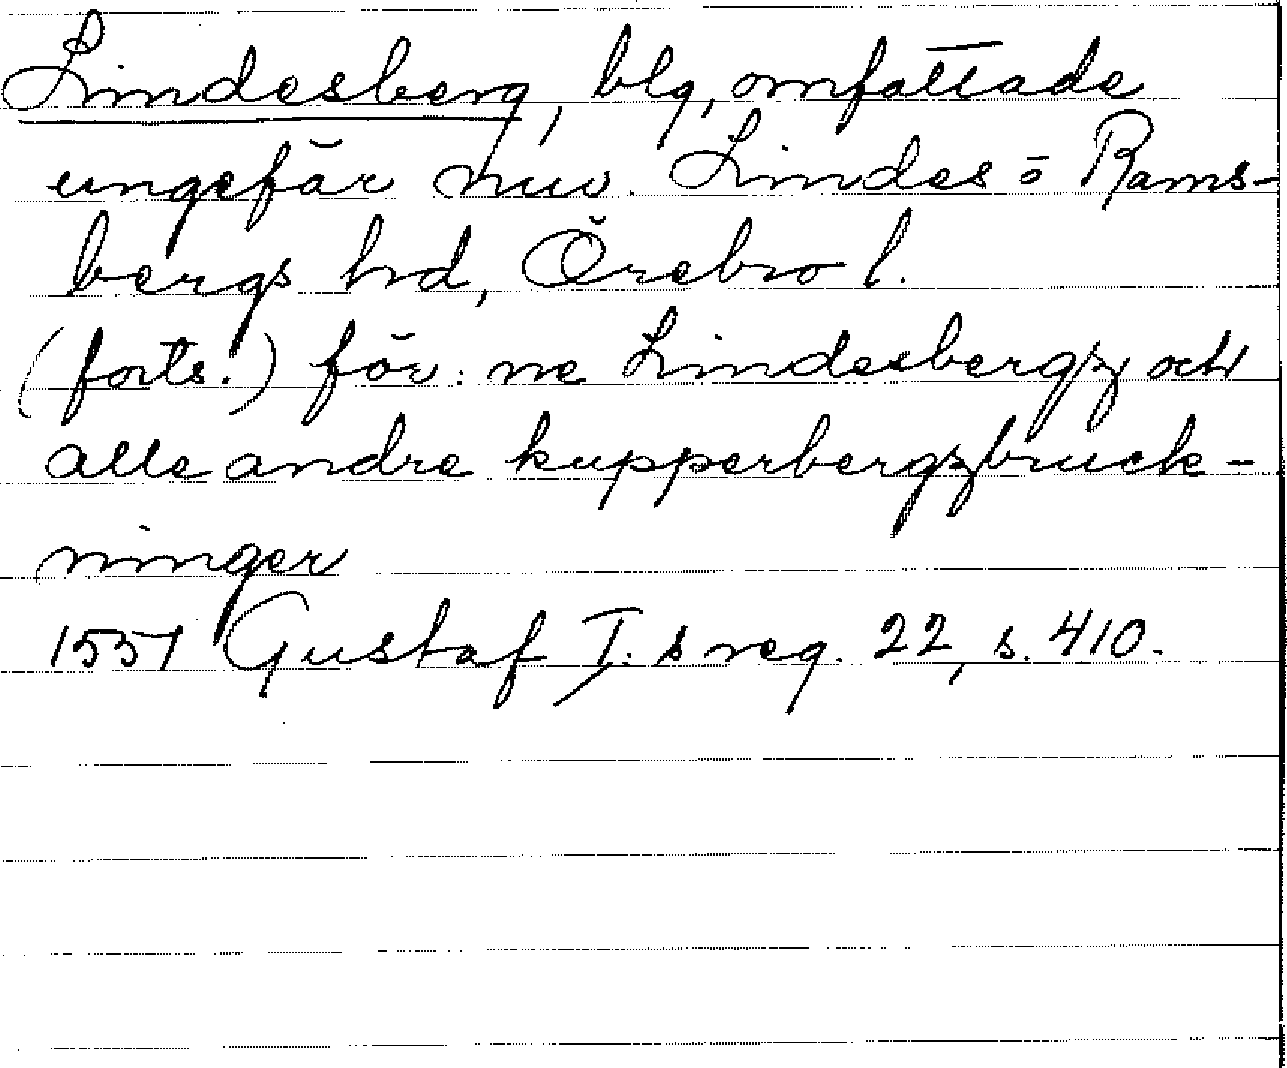 Lindesberg, blg, omfattade
ungefär nuv. Lindes o Rams-
bergs hd, Örebro l.
(forts.) för: ne Lindesbergz och
alle andre kupperbergzbruck-
ninger
1551 Gustaf I:s reg. 22, s. 410.